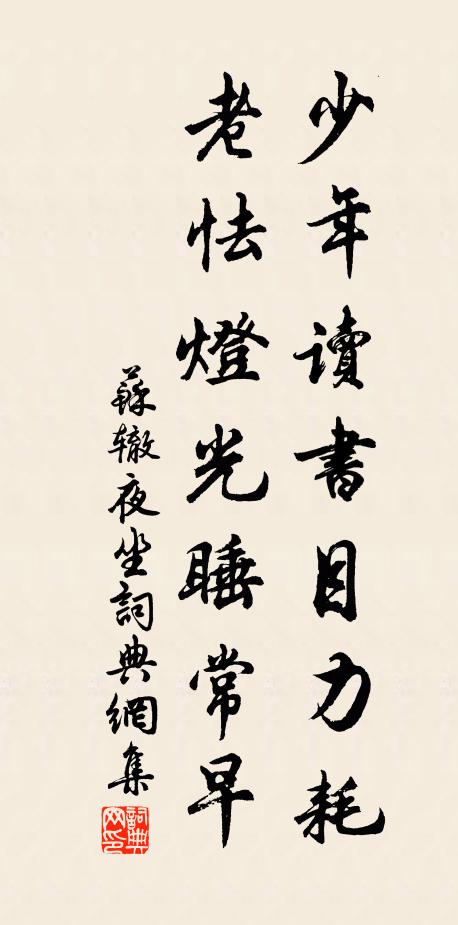 少年讀書目力耗
老怯燈光睡常早
蘇轍夜坐詞典網集
詞典網印